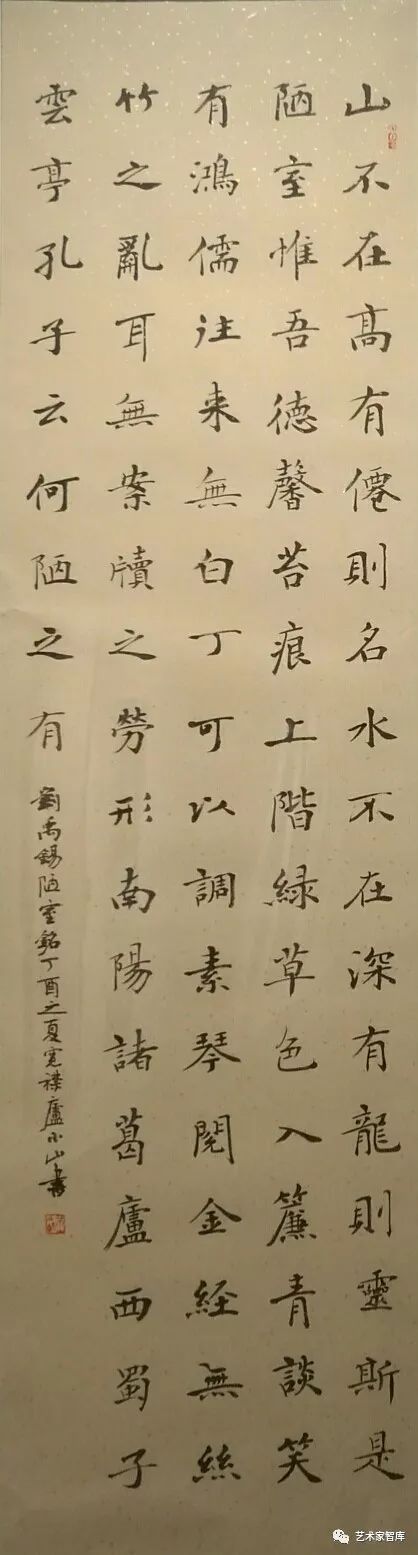 山不在髙有僊則名水不在深有龍則靈斯是
陋室惟吾德馨苔痕上階緑草色入簾青談笑
有鴻儒往来無白丁可以調素琴閱金經無絲
竹之亂耳無案牘之勞形南陽諸葛廬西蜀子
雲亭孔子云何陋之有
劉禹錫陋室銘丁酉之夏寛襟廬小山書
艺术家智库